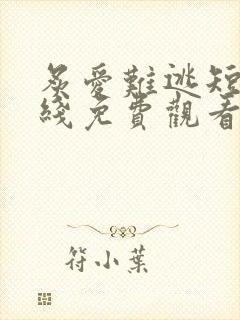 炙愛難逃短
綫免費觀看
符小葉